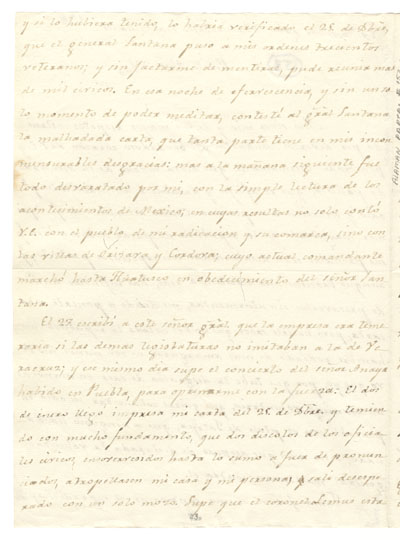 y si lo hubiera tenido, lo habria verificado el 25 de Dbre,
que el general Santana puso a mis ordenes trescientos
veteranos; y sin jactarme de mentiras, pude reunir mas
de mil civicos. En esa noche de efervescencia, y sin
lo momento de poder meditar, contesté al gral Santana
la malhadada carta que tanta parte tiene en mis incon
mensurables desgracias; mas a la mañana siguiente fue
todo desvaratado por mi, con la simple lectura de los
acontecimientos de Mexico, en cuyas resultas no solo contó
V.E. con el pueblo de mi radicacion y su comarca, sino con
las villas de Orizava y Cordova; cuyo actual comandante
marchó hasta Huatusco en obedecimiento del señor San-
tana.
El 27 escribí a este señor gral que la empresa era teme-
raria si las demas legislaturas no imitaban a la de Ve-
racruz; y ese mismo dia supe el concierto del señor Anaya
habido en Puebla, para oprimirme con la fuerza. El dos
de enero llegó impresa mi carta del 25 de Dbre, y temien
do con mucho fundamento, que dos discolos de los oficia-
les civicos, enfervorizados hasta lo sumo a fuer de pronun-
ciados, atropellasen mi casa y mi persona, salí desespe-
rado con un solo mozo. Supe que el coronel Lemus esta-